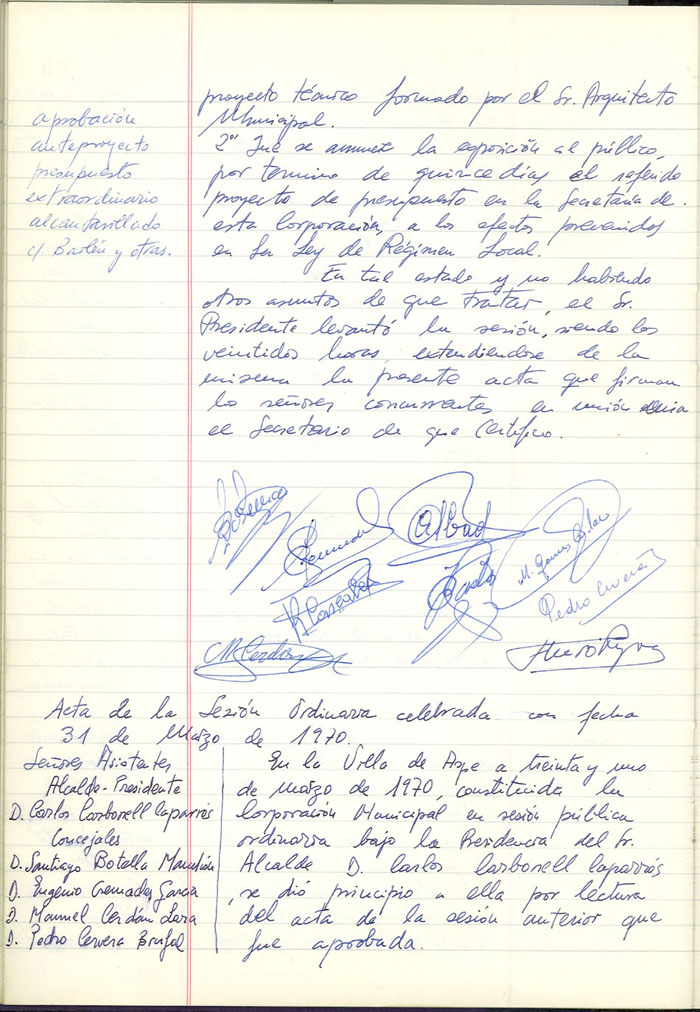 proyecto técnico formado por el Sr. Arquitecto
Municipal.
aprobación
anteproyecto
presupuesto
extraordinario
alcantarillado
c/ Bailén y otras.
2º Que se anuncie la exposición al público,
por termino de quince dias el referido
proyecto de presupuesto en la Secretaría de
esta Corporación, a los efectos prevenidos
en la Ley de Régimen Local.
En tal estado y no habiendo
otros asuntos de que tratar, el Sr.
Presidente levantó la sesión, siendo las
veintidos horas, extendiendose de la
misma la presente acta que firman
los señores concurrentes en unión
el Secretario de que Certifico.
Albert
M. Gomis
Pedro Cervera
M Cerdán
Acta de la Sesión Ordinaria celebrada con fecha
31 de Marzo de 1970.
Señores Asistentes
Alcalde-Presidente
D. Carlos Carbonell Caparrós
Concejales
D. Santiago Botella Mandión
D. Eugenio Cremades Garcia
D. Manuel Cerdán Lara
D. Pedro Cervera Brufal
En la Villa de Aspe a treinta y uno
de marzo de 1970, constituida la
Corporación Municipal en sesión pública
ordinaria bajo la Presidencia del Sr.
Alcalde D. Carlos Carbonell Caparrós
, se dió principio a ella por lectura
del acta de la sesión anterior que
fue aprobada.